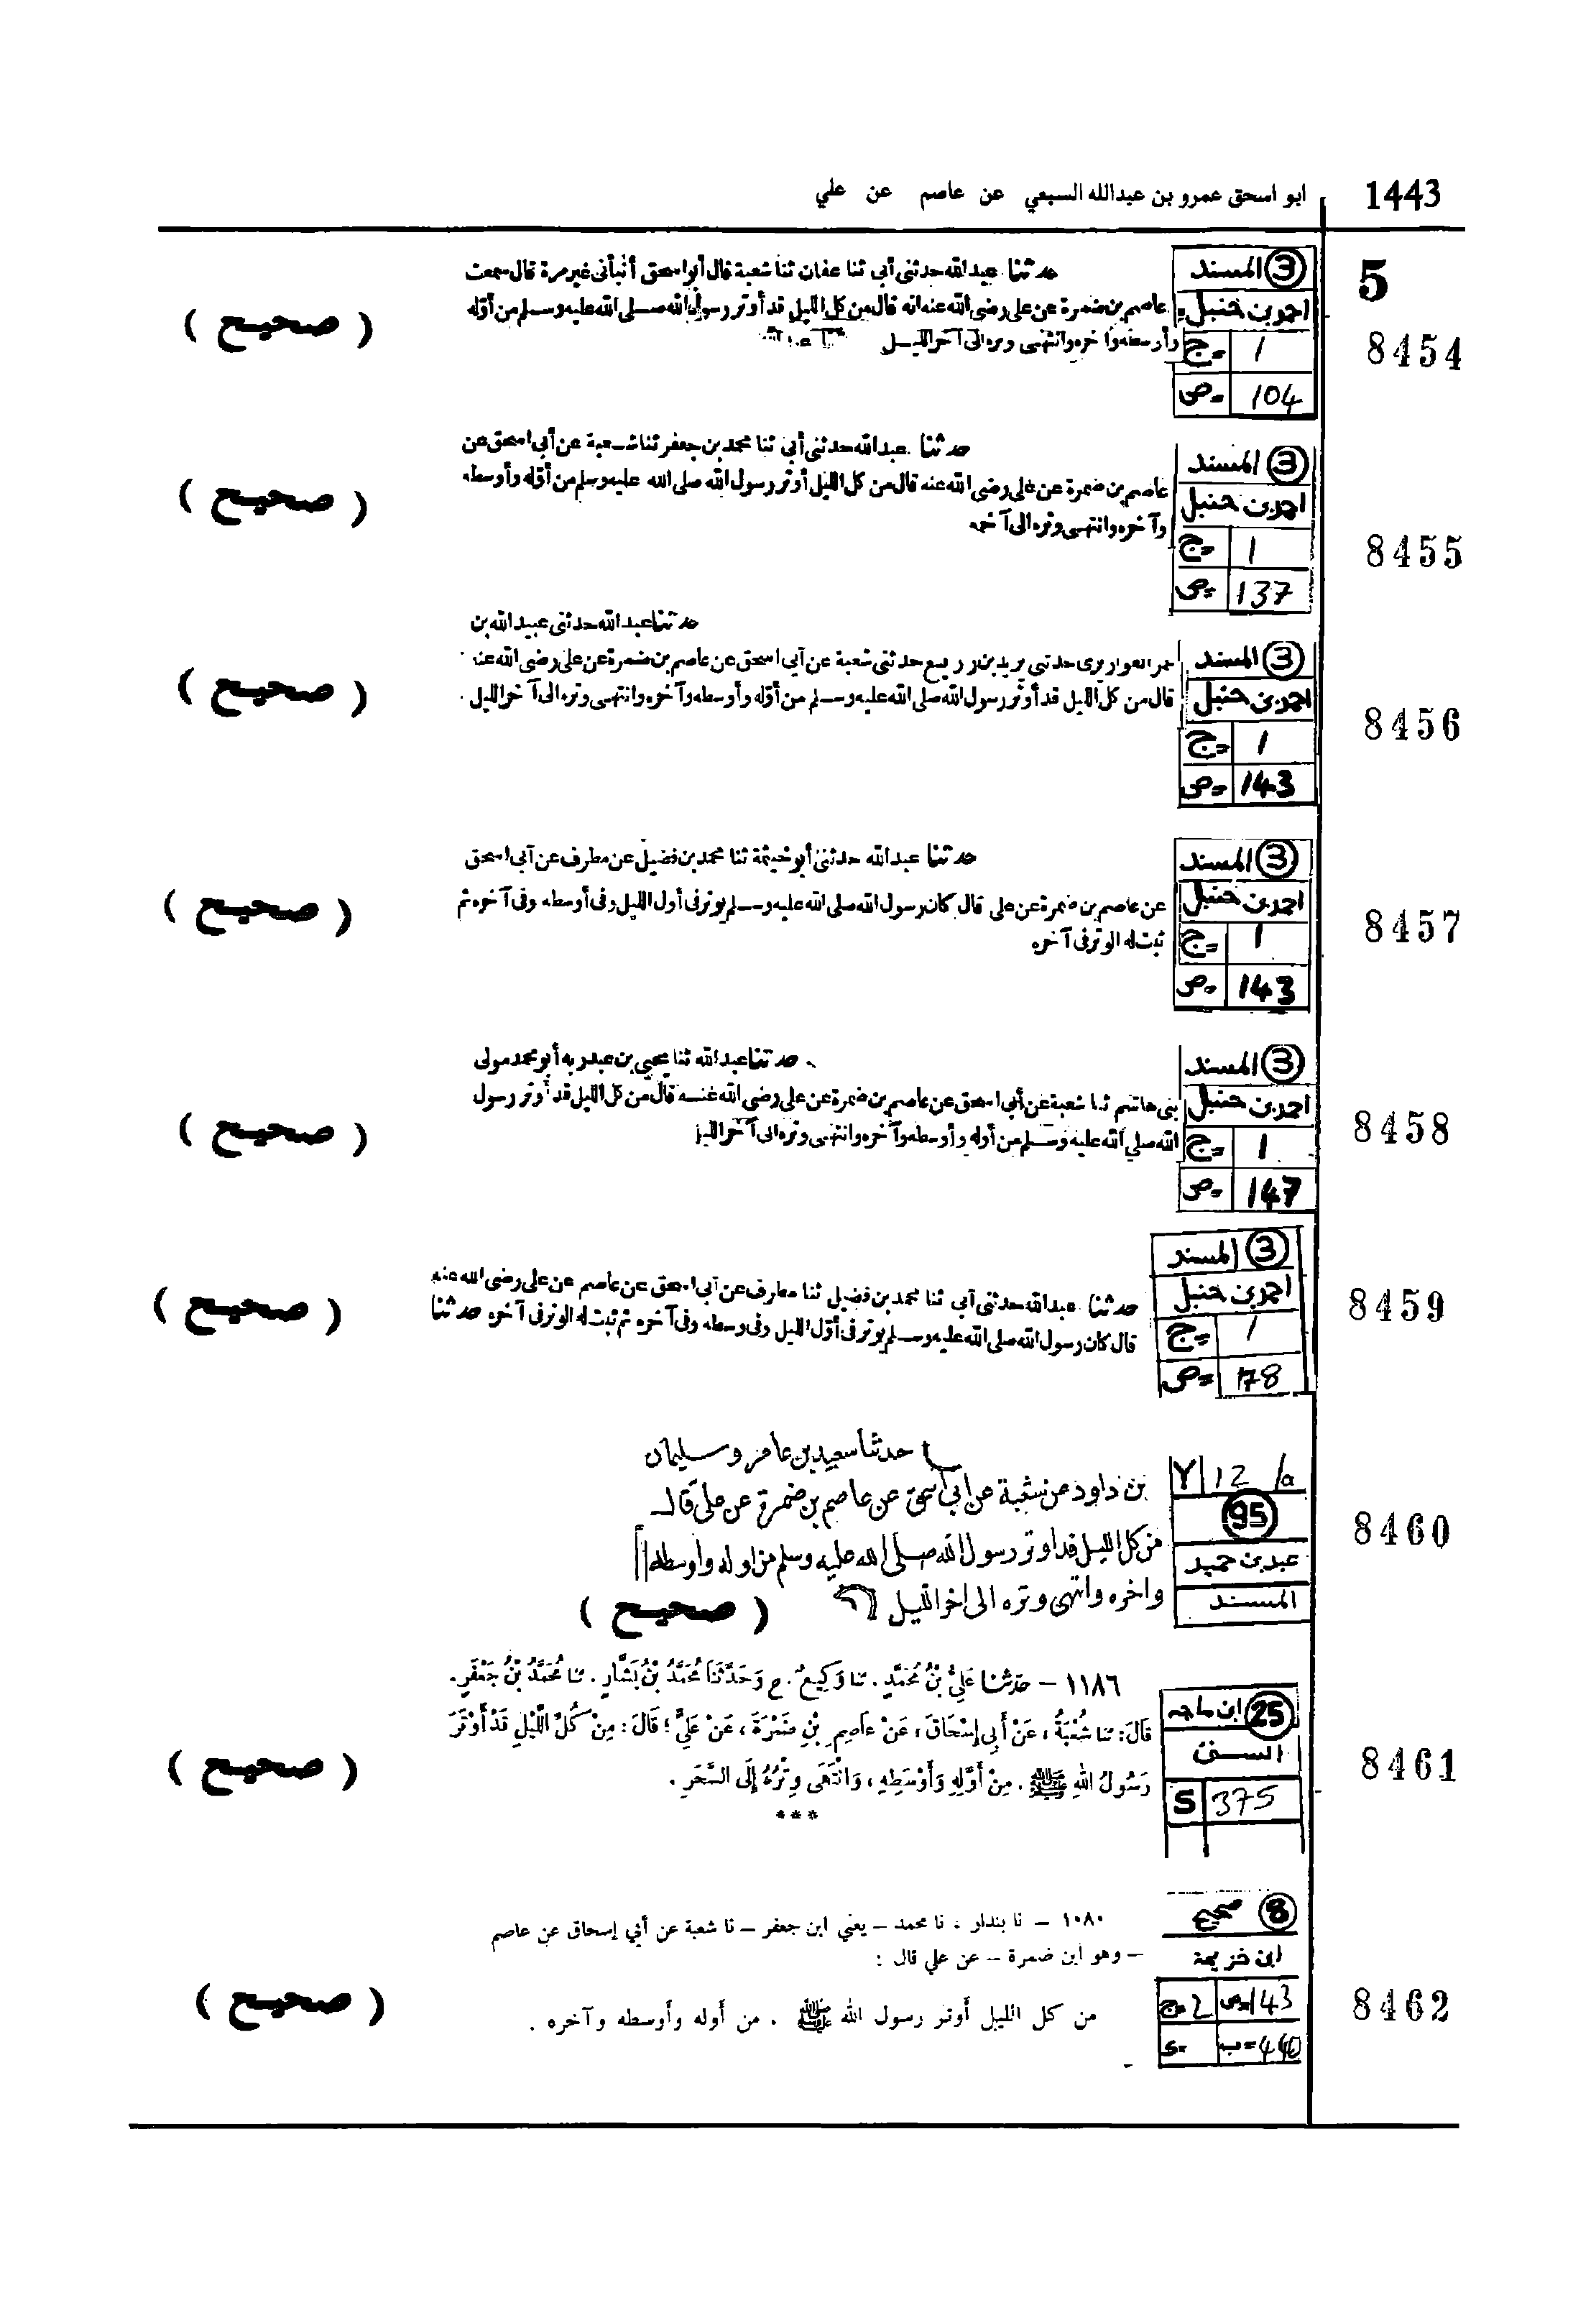 1443
ابو اسحق عمرو بن عبدالله السبعي عن عاصم عن علي
5
8454
(3) المسند
احمد بن حنبل
ج= 1
ص= 104
حدثنا عبد الله حدثنى أبى ثنا عفان ثنا شعبة قال أبو اسحق أنبأنى غير مرة قال سمعت
عاصم بن ضمرة عن على رضى الله عنه انه قال من كل الليل قد أوتر رسول الله صلى الله عليه وسلم من أوله
وأوسطه وآخره وانتهى وتره الى آخر الليل
( صحيح )
8455
(3) المسند
احمد بن حنبل
ج= 1
ص= 137
حدثنا عبد الله حدثنى أبى ثنا محمد بن جعفر ثنا شعبة عن أبى اسحق عن
عاصم بن ضمرة عن على رضى الله عنه قال من كل الليل أوتر رسول الله صلى الله عليه وسلم من أوله وأوسطه
وآخره وانتهى وتره الى آخره
( صحيح )
8456
(3) المسند
احمد بن حنبل
ج= 1
ص= 143
حدثنا عبد الله حدثنى عبيد الله بن
عمر القواريرى حدثنى يزيد بن زريع حدثنى شعبة عن أبى اسحق عن عاصم بن ضمرة عن على رضى الله عنه
قال من كل الليل قد أوتر رسول الله صلى الله عليه وسلم من أوله وأوسطه وآخره وانتهى وتره الى آخر الليل .
( صحيح )
8457
(3) المسند
احمد بن حنبل
ج= 1
ص= 143
حدثنا عبد الله حدثنى أبو خيثمة ثنا محمد بن فضيل عن مطرف عن أبى اسحق
عن عاصم بن ضمرة عن على قال كان رسول الله صلى الله عليه وسلم يوتر فى أول الليل وفى أوسطه وفى آخره ثم
ثبت له الوتر فى آخره
( صحيح )
8458
(3) المسند
احمد بن حنبل
ج= 1
ص= 147
حدثنا عبد الله ثنا يحيى بن عبدربه أبو محمد مولى
بنى هاشم ثنا شعبة عن أبى اسحق عن عاصم بن ضمرة عن على رضى الله عنه قال من كل الليل قد أوتر رسول
الله صلى الله عليه وسلم من أوله وأوسطه وآخره وانتهى وتره الى آخر الليل
( صحيح )
8459
(3) المسند
احمد بن حنبل
ج= 1
ص= 178
حدثنا عبد الله حدثنى أبى ثنا محمد بن فضيل ثنا مطرف عن أبى اسحق عن عاصم عن على رضى الله عنه
قال كان رسول الله صلى الله عليه وسلم يوتر فى أول الليل وفى وسطه وفى آخره ثم ثبت له الوتر فى آخره حدثنا
( صحيح )
8460
Y 12/a
(95)
عبد بن حميد
المسند
حدثنا سعيد بن عامر وسليمان
بن داود عن شعبة عن ابي اسحق عن عاصم بن ضمرة عن علي قال
من كل الليل قد اوتر رسول الله صلى الله عليه وسلم من اوله واوسطه
واخره وانتهى وتره الى اخر الليل
( صحيح )
8461
(25) ابن ماجه
السنن
S 375
١١٨٦ – حَدَّثَنَا عَلِيُّ بْنُ مُحَمَّدٍ . ثنا وَكِيعٌ . ح وَحَدَّثَنَا مُحَمَّدُ بْنُ بَشَّارٍ . ثنا مُحَمَّدُ بْنُ جَعْفَرٍ .
قَالَ : ثنا شُعْبَةُ ، عَنْ أَبِي إِسْحَاقَ ، عَنْ عَاصِمِ بْنِ ضَمْرَةَ ، عَنْ عَلِيٍّ ؛ قَالَ : مِنْ كُلِّ اللَّيْلِ قَدْ أَوْتَرَ
رَسُولُ اللهِ ﷺ . مِنْ أَوَّلِهِ وَأَوْسَطِهِ ، وَانْتَهَى وِتْرُهُ إِلَى السَّحَرِ .
***
( صحيح )
8462
(8) صحيح
ابن خزيمة
ج=2 ص=143
s= ب=440
١٠٨٠ – نا بندار ، نا محمد – يعني ابن جعفر – نا شعبة عن أبي إسحاق عن عاصم
– وهو ابن ضمرة – عن علي قال :
من كل الليل أوتر رسول الله ﷺ . من أوله وأوسطه وآخره .
( صحيح )